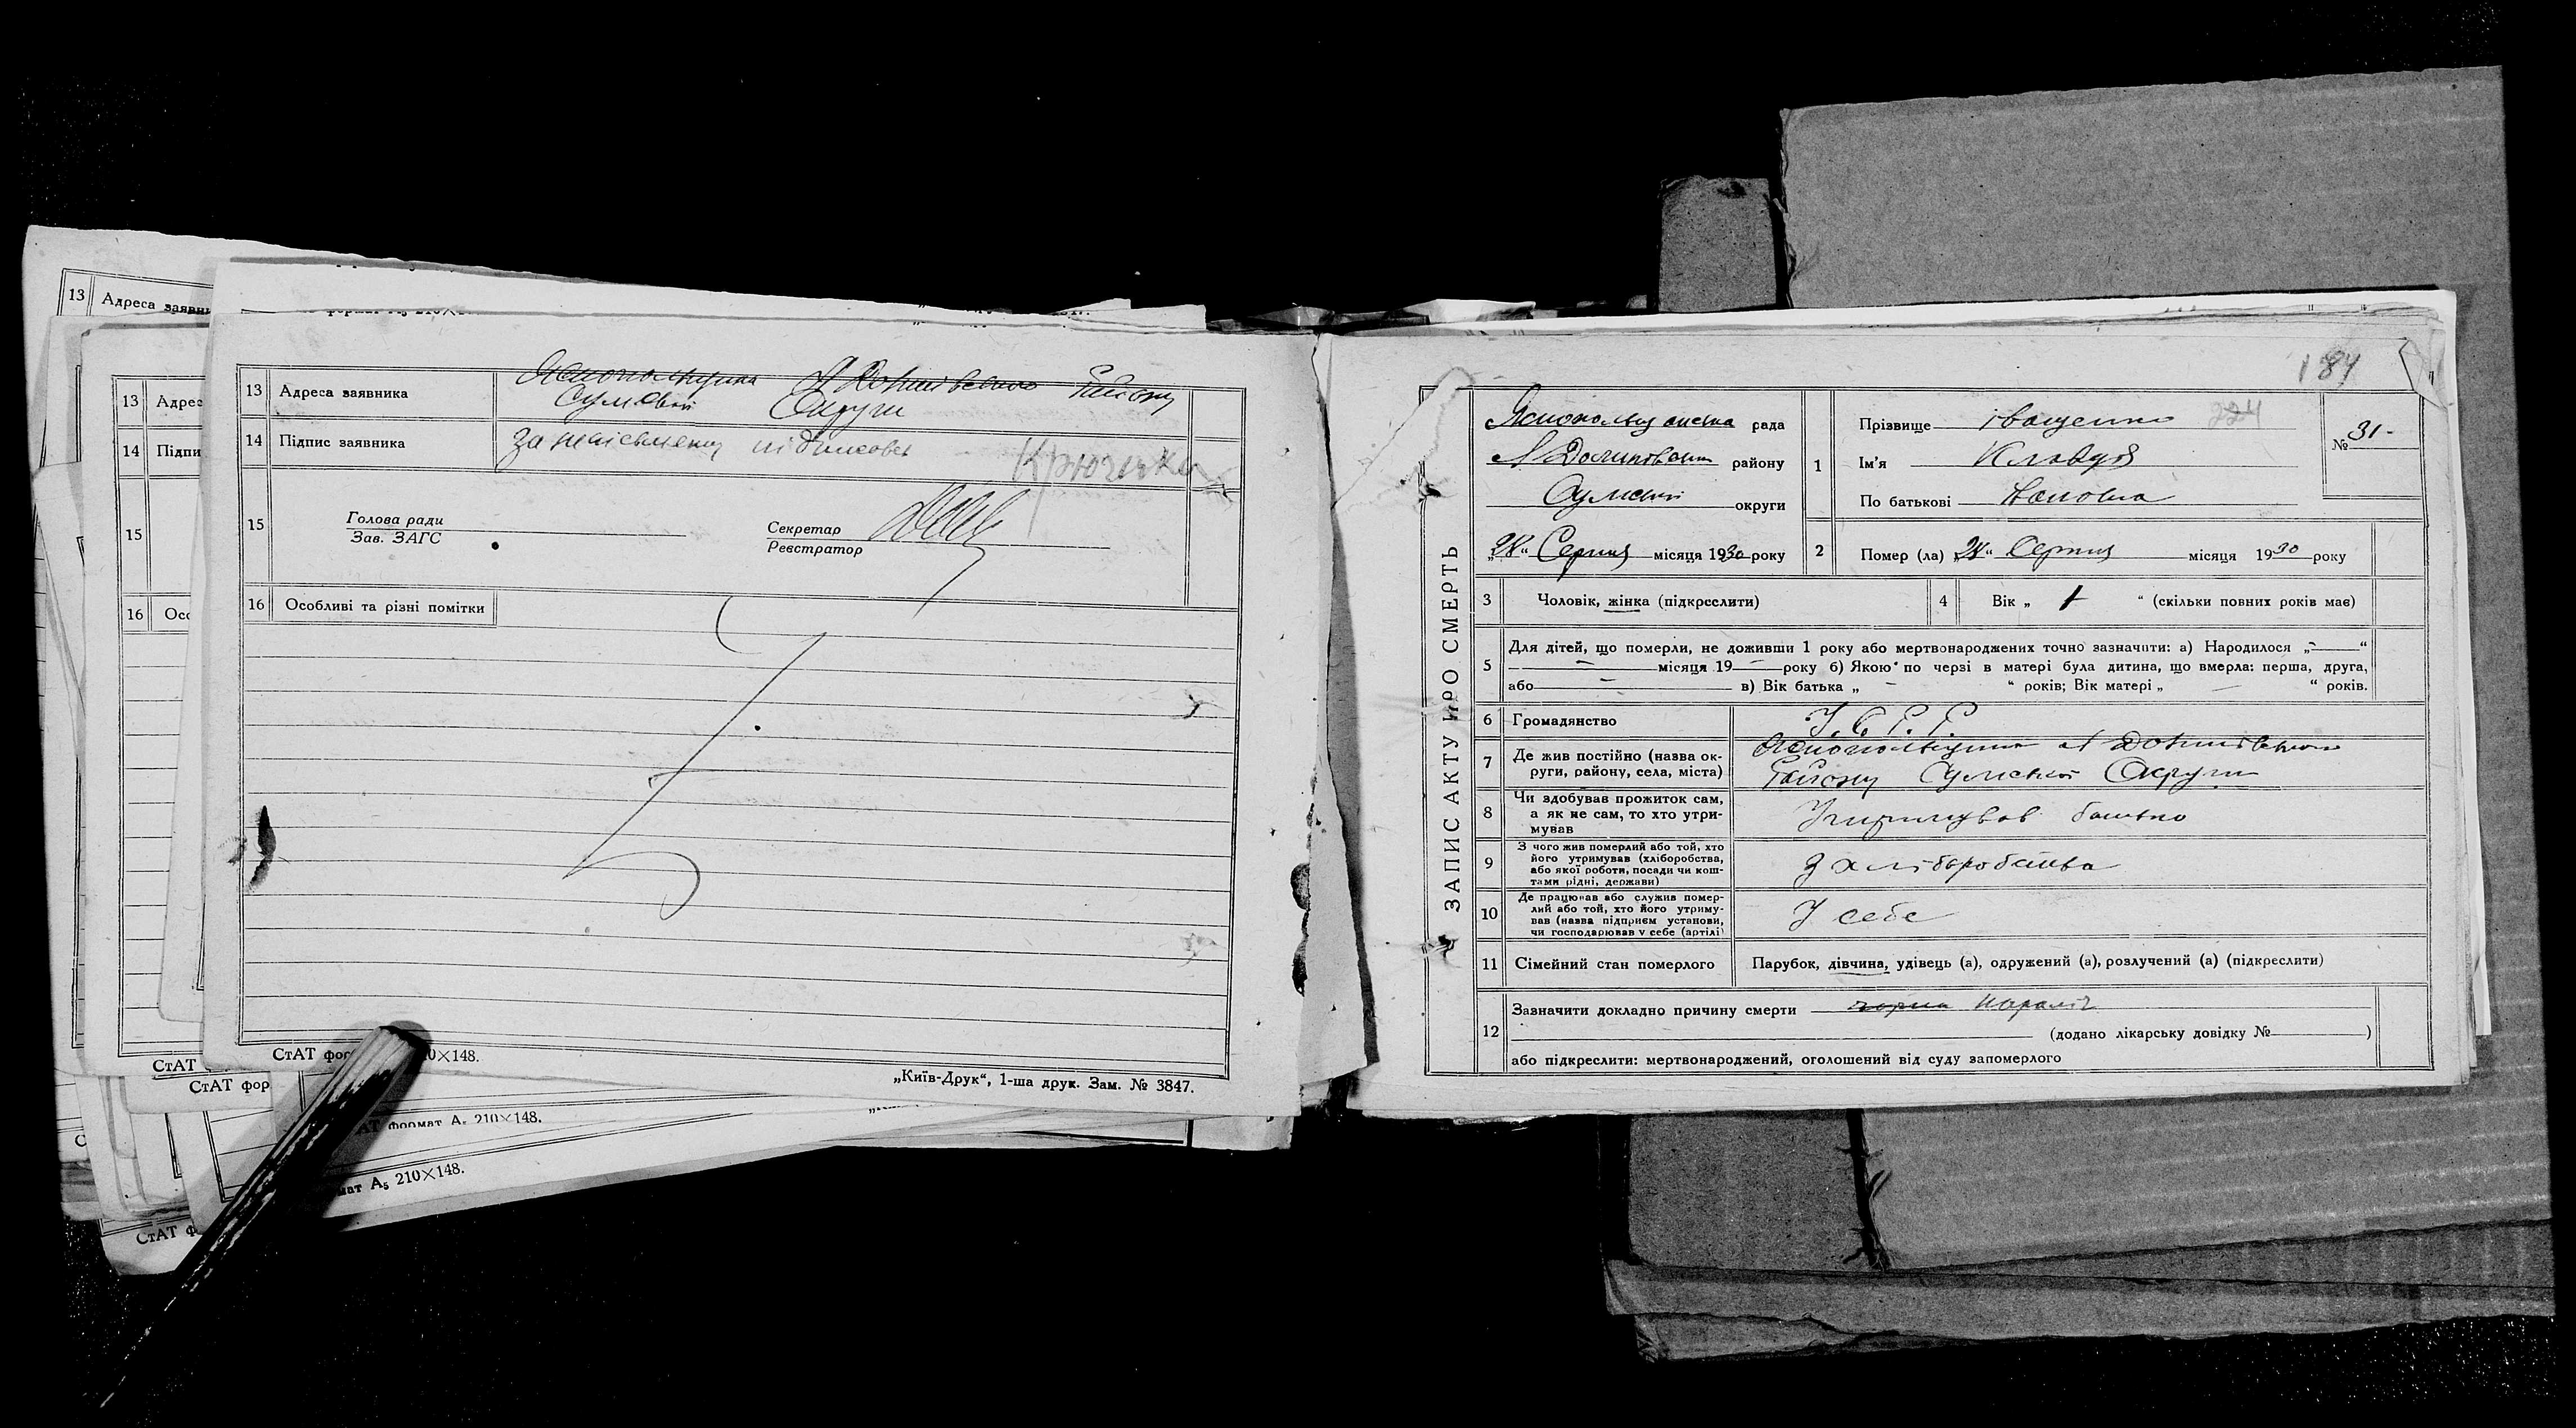 13 Адреса заявни
13 Адрес
14 Підпи
15
16 Осо
СтАТ
СтАТ фор
СтАТ ф
АТ формат А₅ 210×148.
мат А₅ 210×148.
13 Адреса заявника Яснопольщина району
Сумської Округи
14 Підпис заявника За неписьмену підписавсь Крючечка
15 Голова ради
Зав. ЗАГС
Секретар
Реєстратор
16 Особливі та різні помітки
СтАТ фор 0×148.
„Київ-Друк“, 1-ша друк. Зам. № 3847.
184
ЗАПИС АКТУ ПРО СМЕРТЬ
рада
району
Сумської округи
„28“ Серпня місяця 1930 року
1 Прізвище Іващенко 224
Ім'я Клавдія
По батькові
№ 31-
2 Помер (ла) „28“ Серпня місяця 1930 року
3 Чоловік, жінка (підкреслити)
4 Вік „ 1 “ (скільки повних років має)
5 Для дітей, що померли, не доживши 1 року або мертвонароджених точно зазначити: а) Народилося „—“
— місяця 19— року б) Якою по черзі в матері була дитина, що вмерла: перша, друга,
або — в) Вік батька „ - “ років; Вік матері „ — “ років.
6 Громадянство У.С.Р.Р.
7 Де жив постійно (назва ок-
руги, району, села, міста)
Яснопольщина
Району Сумської Округи
8 Чи здобував прожиток сам,
а як не сам, то хто утри-
мував
Утримував батько
9 З чого жив померлий або той, хто
його утримував (хліборобства,
або якої роботи, посади чи кош-
тами рідні, держави)
З хліборобства
10 Де працював або служив помер-
лий або той, хто його утриму-
вав (назва підприєм установи,
чи господарював у себе (артілі)
У себе
11 Сімейний стан померлого Парубок, дівчина, удівець (а), одружений (а), розлучений (а) (підкреслити)
12 Зазначити докладно причину смерти параліч
(додано лікарську довідку № )
або підкреслити: мертвонароджений, оголошений від суду запомерлого